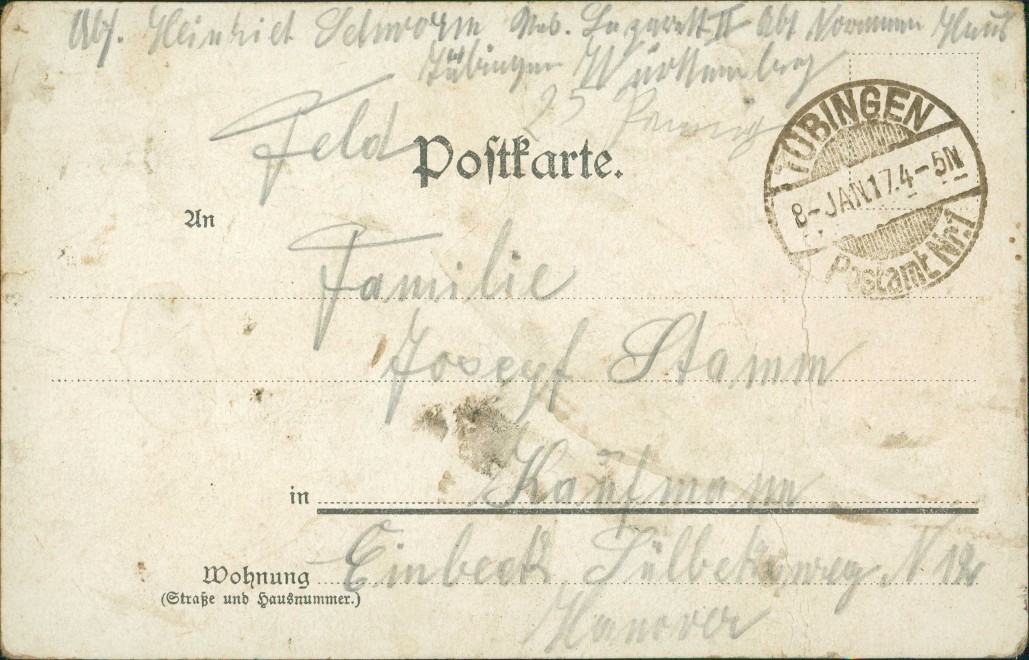 Abs. Heinrich Schworm Res. Lazarett II Abt. Normannen Haus
Tübingen Württemberg
25 Pfennig
Feld Postkarte.
TÜBINGEN
8-JAN.17.4-5N
Postamt Nr.1
An
Familie
Joseph Stamm
in Kaufmann
Wohnung Einbeck Hülbeckerweg N
(Straße und Hausnummer.)
Hanover